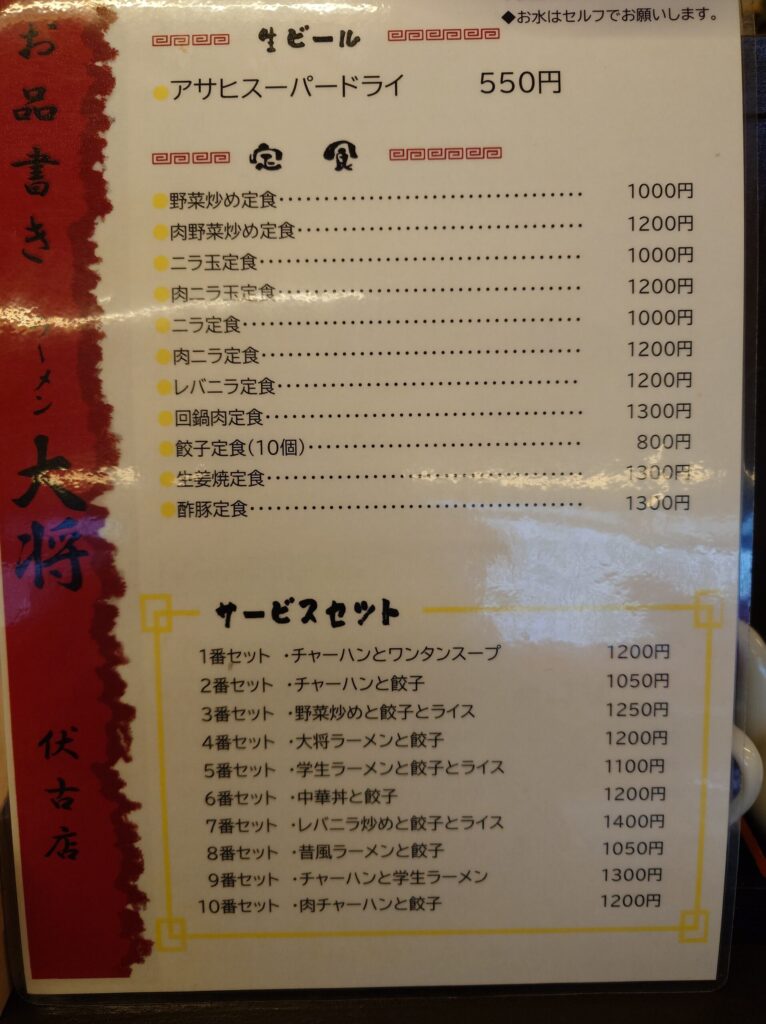 お品書き
ラーメン
大将
伏古店
◆お水はセルフでお願いします。
生ビール
アサヒスーパードライ 550円
定食
野菜炒め定食 1000円
肉野菜炒め定食 1200円
ニラ玉定食 1000円
肉ニラ玉定食 1200円
ニラ定食 1000円
肉ニラ定食 1200円
レバニラ定食 1200円
回鍋肉定食 1300円
餃子定食(10個) 800円
生姜焼定食 1300円
酢豚定食 1300円
サービスセット
1番セット ・チャーハンとワンタンスープ 1200円
2番セット ・チャーハンと餃子 1050円
3番セット ・野菜炒めと餃子とライス 1250円
4番セット ・大将ラーメンと餃子 1200円
5番セット ・学生ラーメンと餃子とライス 1100円
6番セット ・中華丼と餃子 1200円
7番セット ・レバニラ炒めと餃子とライス 1400円
8番セット ・昔風ラーメンと餃子 1050円
9番セット ・チャーハンと学生ラーメン 1300円
10番セット ・肉チャーハンと餃子 1200円